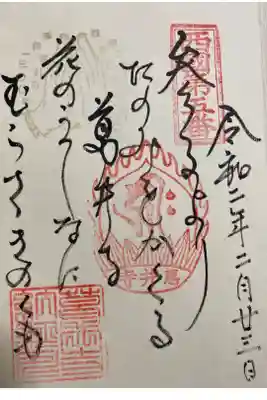 令和二年二月廿三日
西国第五番
参るより
たのみをかくる
葛井寺
葛井寺
花のうてなに
むらさきのくも